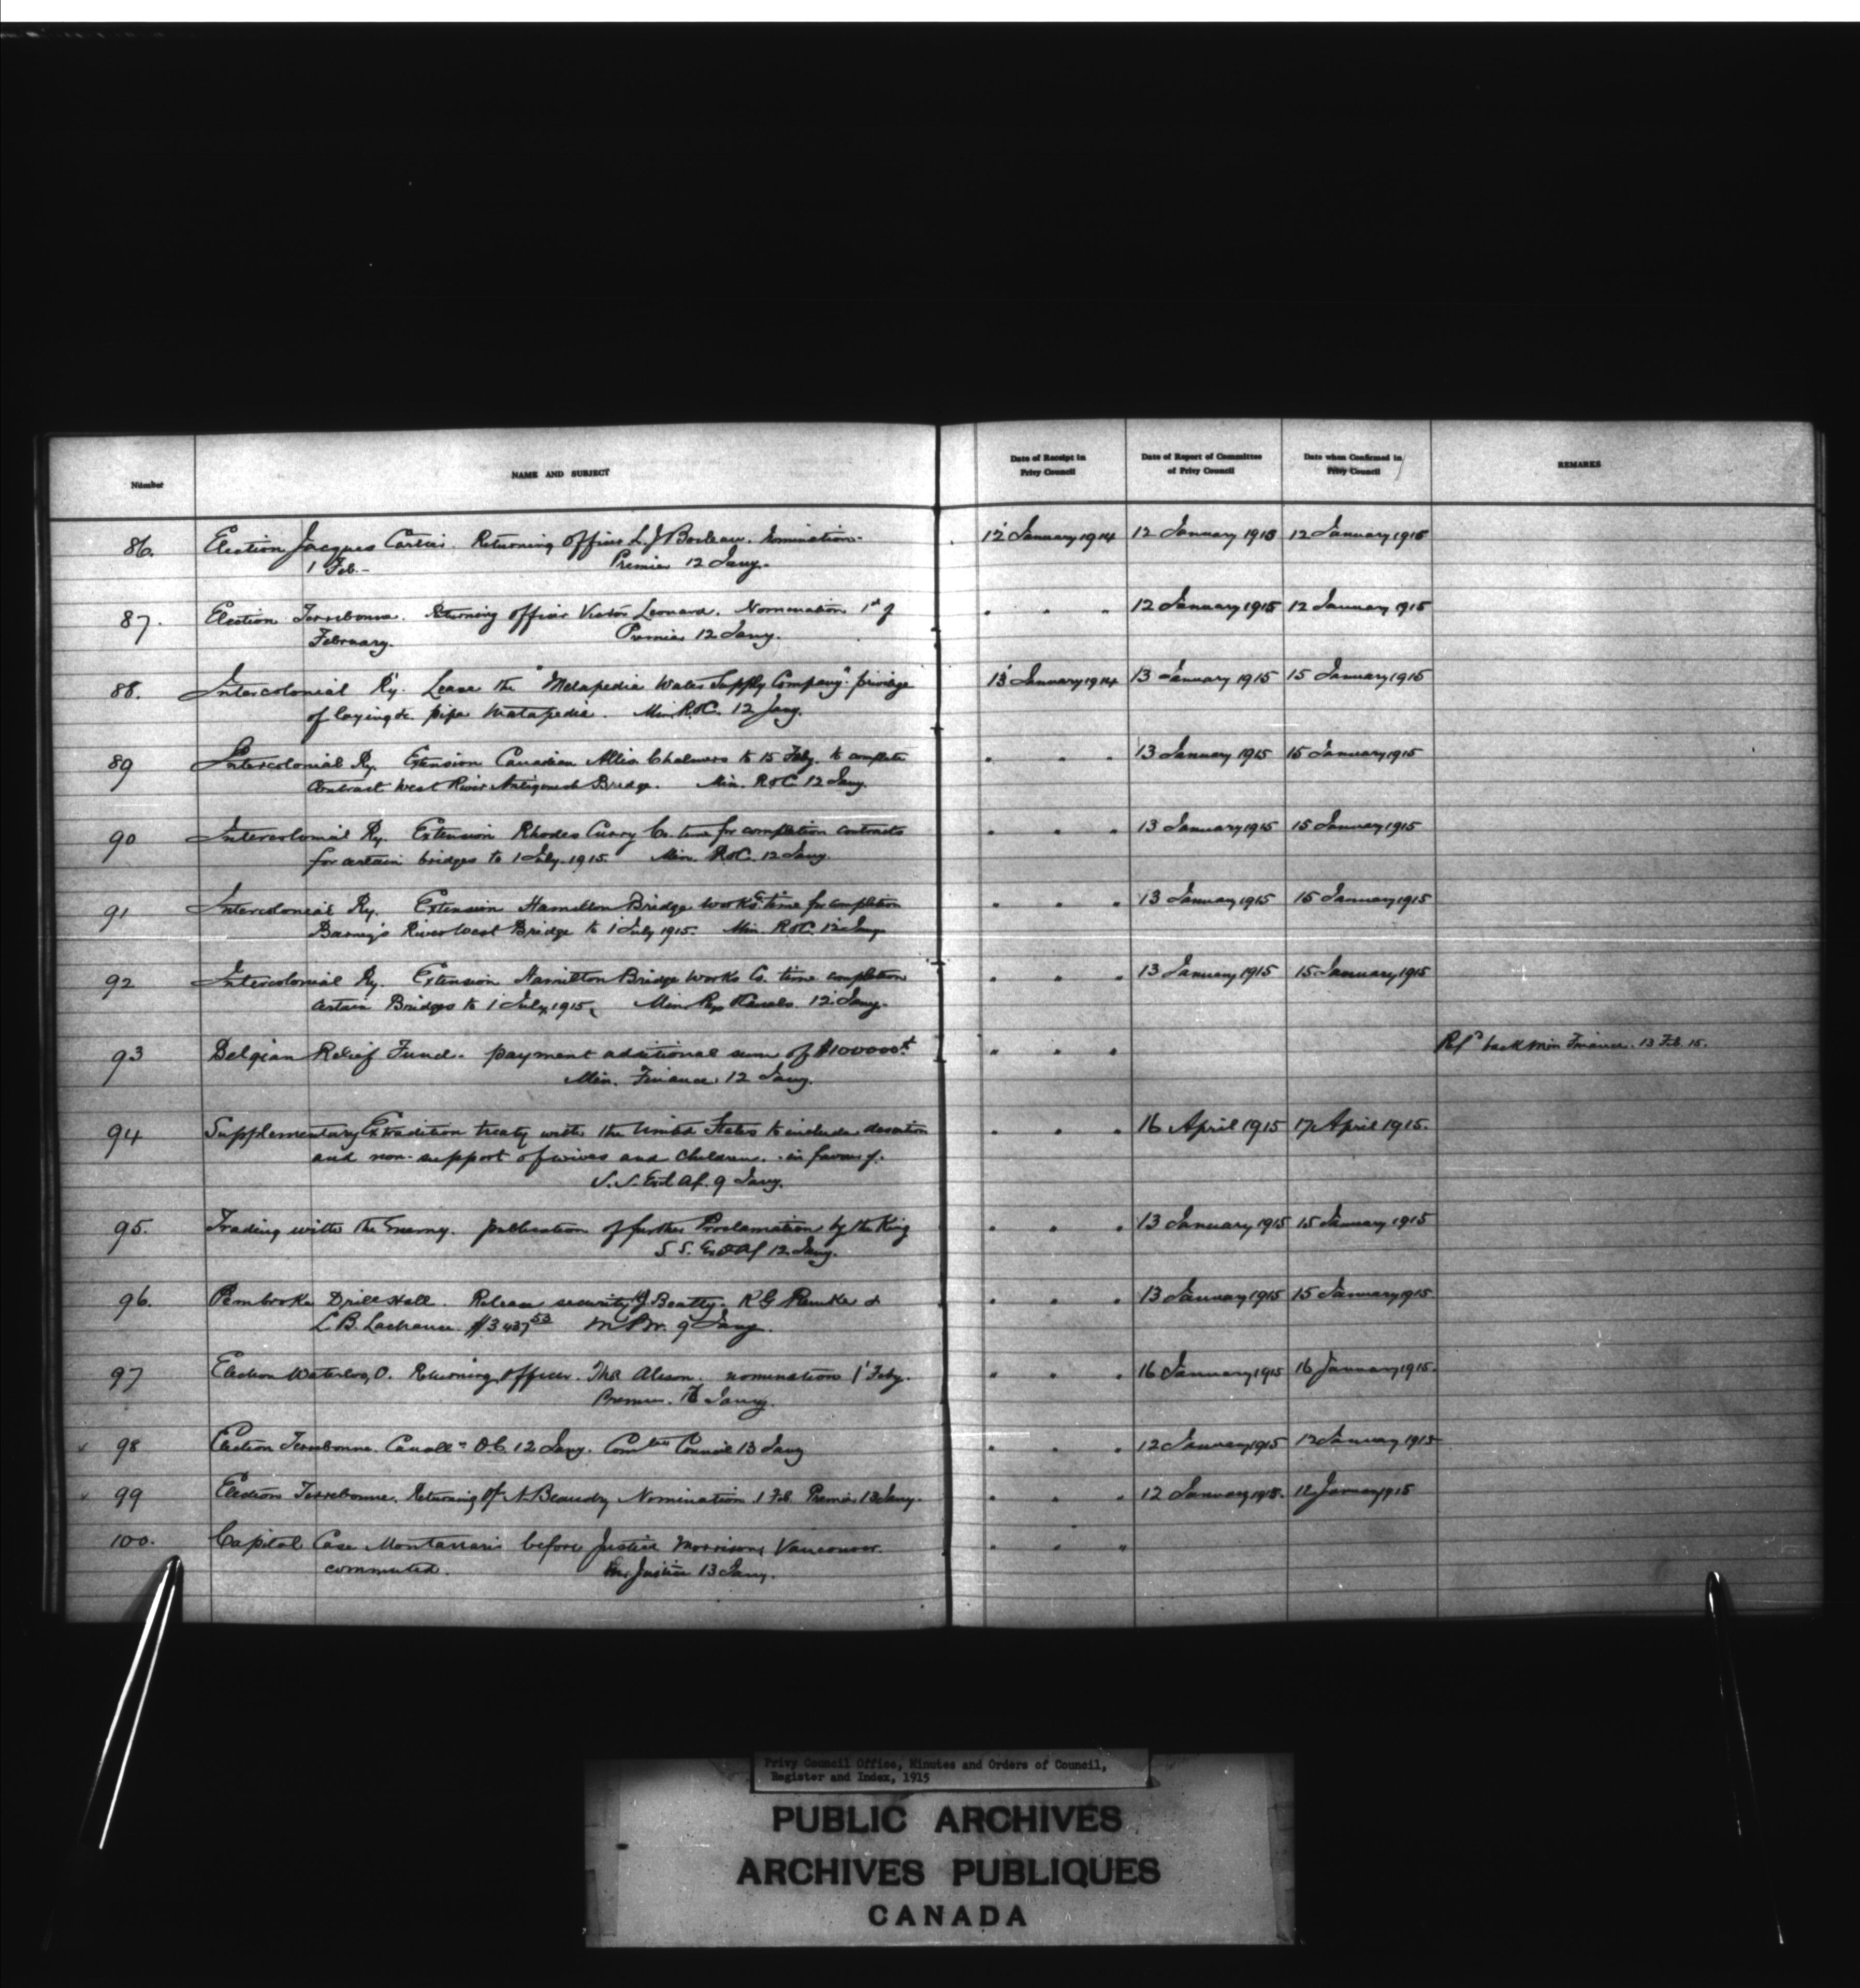 Number
NAME AND SUBJECT
Date of Receipt in Privy Council
Date of Report of Committee of Privy Council
Date when Confirmed in Privy Council
REMARKS
86. Election Jacques Cartier. Returning Officer L. J. Boileau. Nomination- 12 January 1914 12 January 1915 12 January 1915
1 Feb.- Premier 12 Jany.
87. Election Terrebonne. Returning officer Victor Leonard. Nomination 1st of " " " 12 January 1915 12 January 1915
February. Premier 12 Jany.
88. Intercolonial Ry. Lease the "Metapedia Water Supply Company" privilege 13 January 1914 13 January 1915 15 January 1915
of laying &c. pipe Matapedia. Min. R&C. 12 Jany.
89 Intercolonial Ry. Extension Canadian Allis Chalmers to 15 Feby. to complete " " 13 January 1915 15 January 1915
Contract West River Antigonish Bridge. Min. R&C 12 Jany.
90 Intercolonial Ry. Extension Rhodes Curry Co. time for completion contracts " " " 13 January 1915 15 January 1915
for certain bridges to 1 July 1915. Min. R&C. 12 Jany.
91 Intercolonial Ry. Extension Hamilton Bridge Works time for completion " " " 13 January 1915 15 January 1915
Barney's River West Bridge to 1 July 1915. Min. R&C. 12 Jany
92 Intercolonial Ry. Extension Hamilton Bridge Works Co. time completion " " " 13 January 1915 15 January 1915
certain Bridges to 1 July, 1915. Min. Rys &Canals. 12 Jany.
93 Belgian Relief Fund. payment additional sum of $100000. " " " Refd back Min Finance. 13 Feb. 15.
Min. Finance. 12 Jany.
94 Supplementary Extradition treaty with the United States to include desertion " " " 16 April 1915 17 April 1915.
and non-support of wives and children. - in favour of.
S.S. Extl Af. 9 Jany.
95. Trading with the Enemy. publication of further Proclamation by the King " " " 13 January 1915 15 January 1915
S.S. Ext Af 12 Jany.
96. Pembroke Drill Hall. Release security J. Beatty. R G & " " " 13 January 1915 15 January 1915
L. B. Lachance. $3437 53 M P.W. 9 Jany.
97 Election Waterloo, O. Returning Officer. Alison. nomination 1 Feby. " " " 16 January 1915 16 January 1915.
Premier. Jany.
98 Election Terrebonne. O.C. 12 Jany. Comtee Council 13 Jany " " " 12 January 1915 12 January 1915
99 Election Terrebonne. Returning Of N. Beaudry Nomination 1 Feb. Premier 13 Jany. " " " 12 January 1915. 12 January 1915
100. Capital Case Montanaris before Justice Morrison, Vancouver. " " "
commuted. Min. Justice 13 Jany.
Privy Council Office, Minutes and Orders of Council,
Register and Index, 1915
PUBLIC ARCHIVES
ARCHIVES PUBLIQUES
CANADA